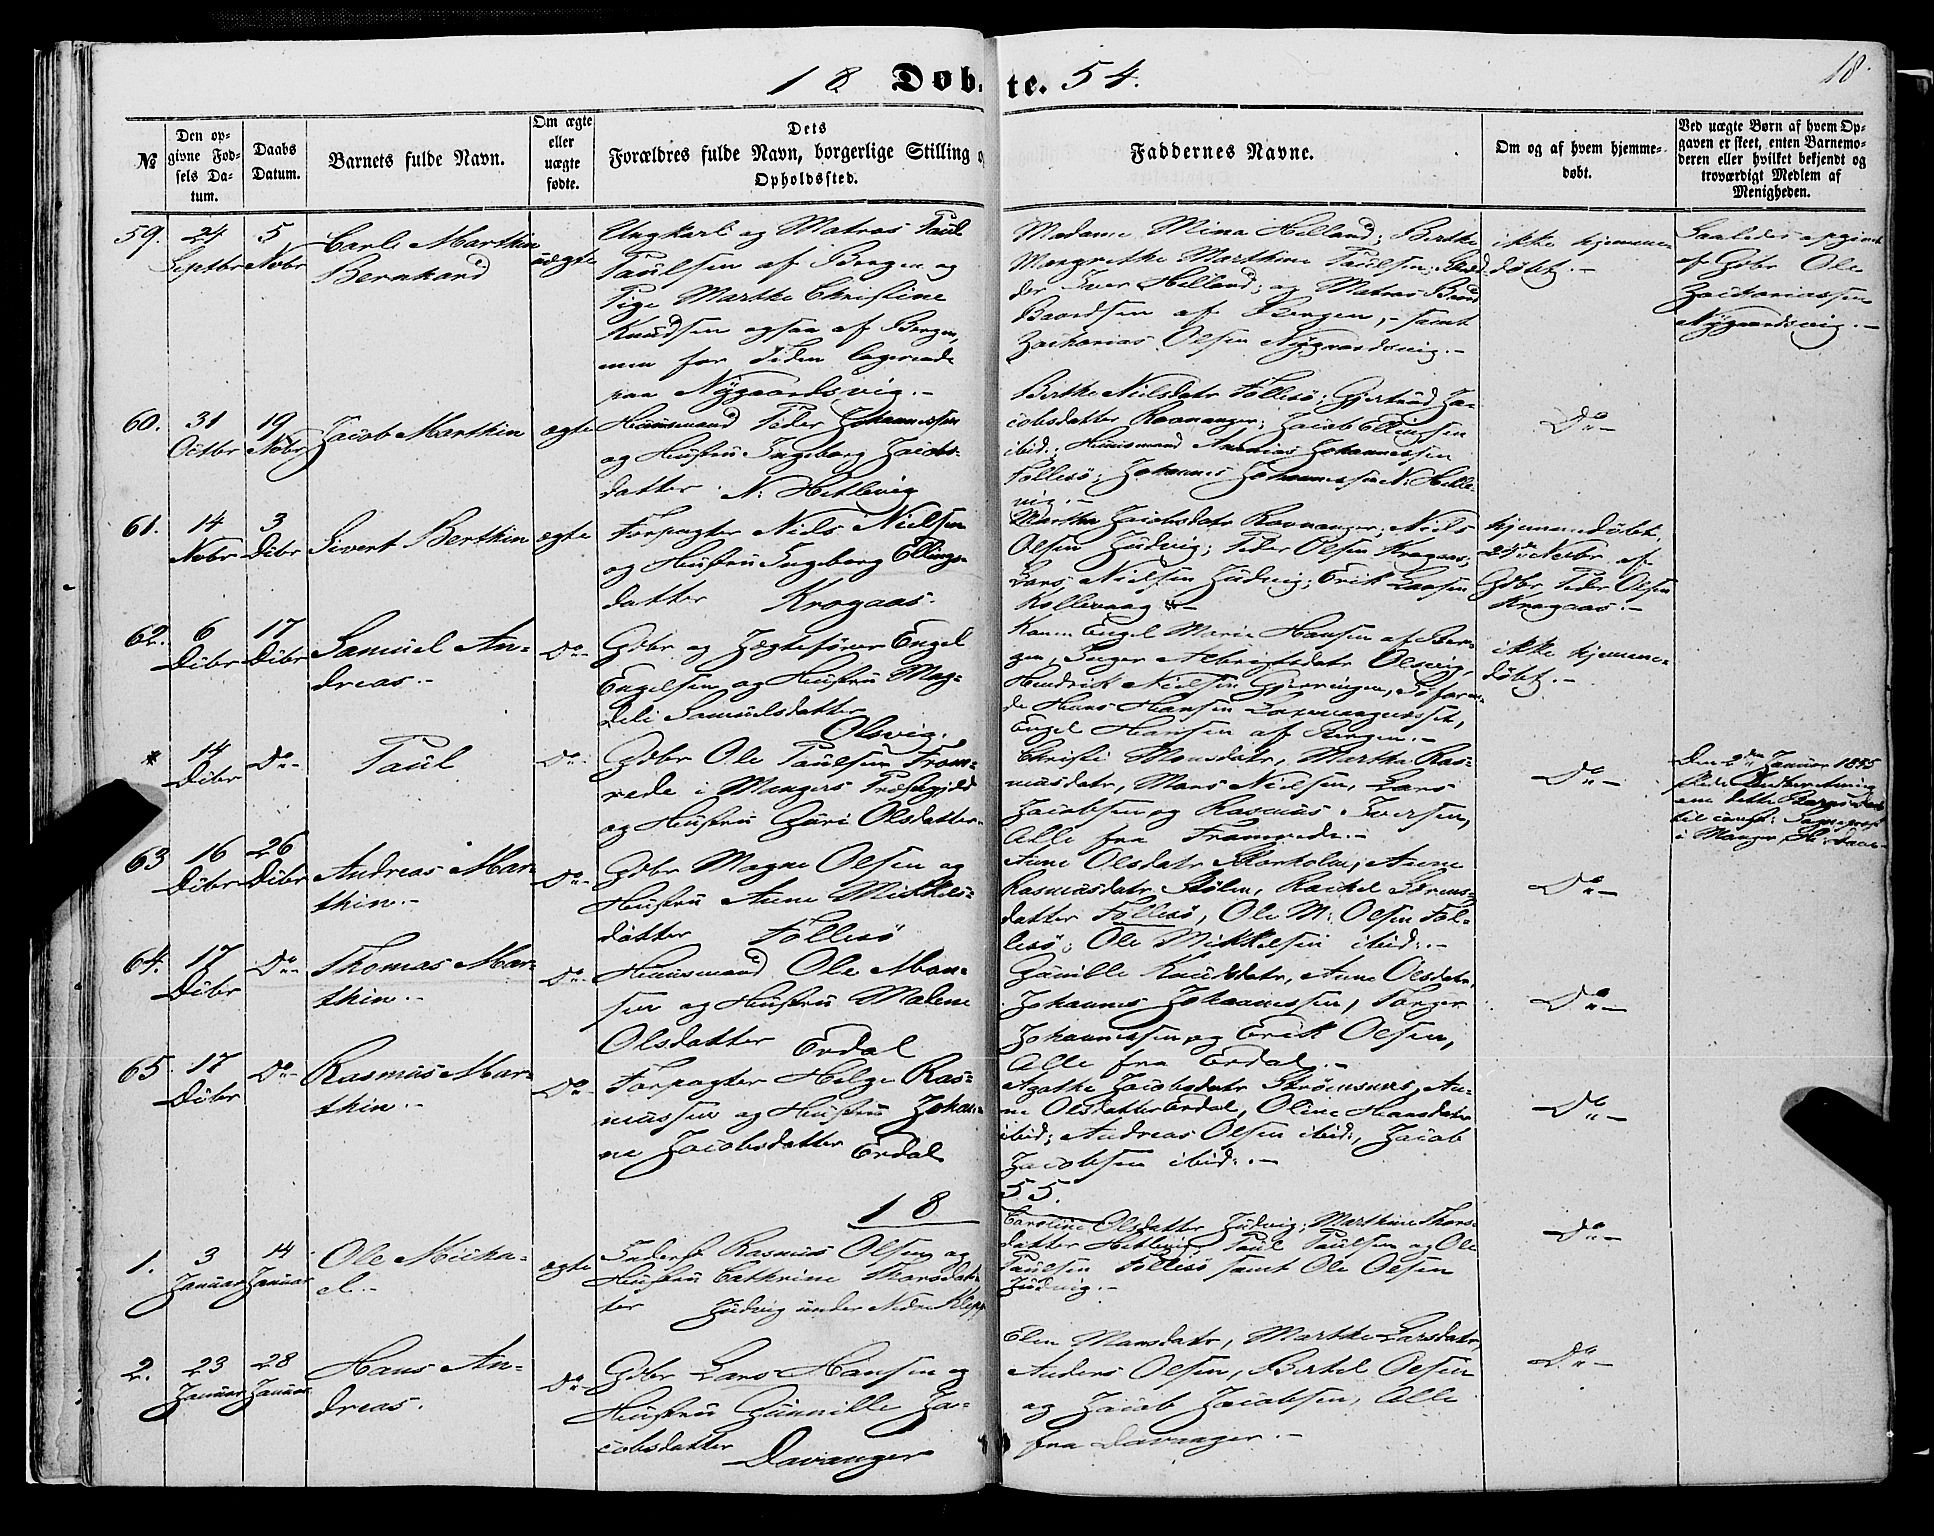 18
18 Døbte. 54.
№
Den opgivne Fødsels Datum.
Daabs Datum.
Barnets fulde Navn.
Om ægte eller uægte fødte.
Dets Forældres fulde Navn, borgerlige Stilling og Opholdssted.
Faddernes Navne.
Om og af hvem hjemmedøbt.
Ved uægte Børn af hvem Opgaven er skeet, enten Barnemoderen eller hvilket bekjendt og troværdigt Medlem af Menigheden.
59.
24 Septbr
5 Novbr
Carl Marthin
Bernhard
uægte
Ungkarl og Matros Paul
Paulsen af Bergen og
Pige Marthe Christine
Knudsen ogsaa af Bergen,
men for Tiden logerende
paa Nygaardsvig.-
Madame Mina Helland; Berthe
Margrethe Marthine Paulsen;
Iver Helland; og Matros
Baardsen af Bergen,- samt
Zacharias Olsen Nygaardsvig.-
ikke hjemme
døbt.-
Saaledes opgivet
af Gdbr Ole
Zachariassen
Nygaardsvig.-
60.
31 Octbr
19 Nobr
Jacob Marthin
ægte
Huusmand Peder Johannessen
og Hustru Ingeborg Jacobs-
datter. N: Hetlevig
Berthe Nielsdatr Follesø; Gjertrud Ja-
cobsdatter Ravnanger; Jacob Ellingsen
ibid.; Huusmand Ananias Johannessen
Follesø; Johannes Johannessen N: Hetle-
vig.-
Do-
61.
14 Nobr
3 Dibr
Sivert Berthin
ægte
Forpagter Niels Nielsen
og Hustru Ingeborg Ellings-
datter Kragaas.
Martha Jacobsdatr Ravnanger; Niels
Olsen Judvig; Peder Olsen Kragaas;
Lars Nielsen Judvig; Erik Larsen
Kollevaag
hjemmedøbt
24de Novbr af
Gdbr Peder Olsen
Kragaas.-
62.
6 Dibr
17 Dibr
Samuel An-
dreas.-
Do-
Gdbr og Jægtefører Engel
Engelsen og Hustru Mag-
deli Samuelsdatter
Olsvig.
Kone Engel Marie Hansen af Ber-
gen, Inger Albrigtsdatr Olsvig,
Hendrik Nielsen Gjerringen,
Hans Hansen
Engel Hansen af Bergen.-
ikke hjemme-
døbt.-
*
14 Dibr
Do-
Paul
Do-
Gdbr Ole Paulsen From-
rede i Mangers Præstegjeld
og Hustru Guri Olsdatter.
Christi Monsdatr, Marthe Ras-
musdatr, Mons Nielsen, Lars
Jacobsen og Rasmus Iversen,
Alle fra Fromrede.-
Do-
Den 2den Januar 1855
om dette Barns Daab
i Manger
63
16 Dibr
26 Dibr
Andreas Mar-
thin.-
Do-
Gdbr Magne Olsen og
Hustru Anne Mikkels-
datter Follesø
Anne Olsdatr Storholm, Anne
Rasmusdatr Stølen, Rachel Sørens-
datter Follesø, Ole M: Olsen Fol-
lesø; Ole Mikkelsen ibid:-
Do-
64.
17 Dibr
Do-
Thomas Mar-
thin.-
Do-
Huusmand Ole Mon-
sen og Hustru Malene
Olsdatter Erdal
Gunille Knudsdatr, Anne Olsdatr,
Johannes Johannessen, Torger
Johannessen og Erik Olsen,
Alle fra Erdal.-
Do-
65
17 Dibr
Do-
Rasmus Mar-
thin.-
Do-
Forpagter Helge Ras-
mussen og Hustru Johan-
ne Jacobsdatter Erdal
Agathe Jacobsdatr Strømsnes, An-
ne Olsdatter Erdal, Oline Hansdatr
ibid; Andreas Olsen ibid:, Jacob
Jacobsen ibid:-
Do-
18 55.
1.
3 Januar
14 Januar
Ole Micha-
el.-
ægte
Rasmus Olsen og
Hustru Cathrine Thorsdat-
ter Judvig under Nedre Klep
Caroline Olsdatter Judvig; Marthine Thors-
datter Hetlevig, Paul Paulsen og Ole
Paulsen Follesø samt Ole Olsen
Judvig.-
Do-
2.
23 Januar
28 Januar
Hans An-
dreas.
Do-
Gdbr Lars Hansen og
Hustru Gunnille Ja-
cobsdatter Davanger
Elen Monsdatr, Marthe Larsdatr,
Anders Olsen, Bertel Olsen
og Jacob Jacobsen, Alle
fra Davanger.-
Do-